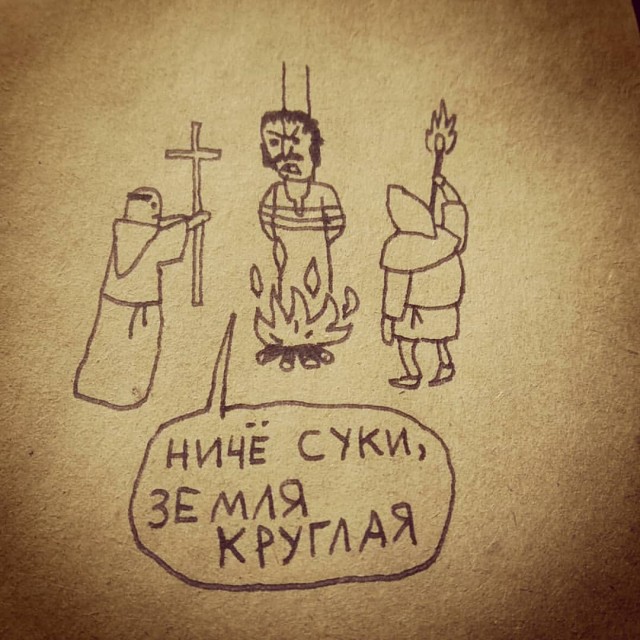 НИЧЁ СУКИ,
ЗЕМЛЯ
КРУГЛАЯ